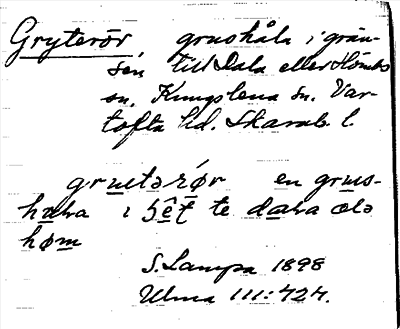 Gryterör, grushåla i grän-
sen till Dala eller Hömbs
sn. Kungslena sn. Var-
tofta hd. Skarab. l.
grutərǿr en grus-
hɷla i ʂêt te dɑla ælə
høm
S. Lampa 1898
Ulma 111:424.